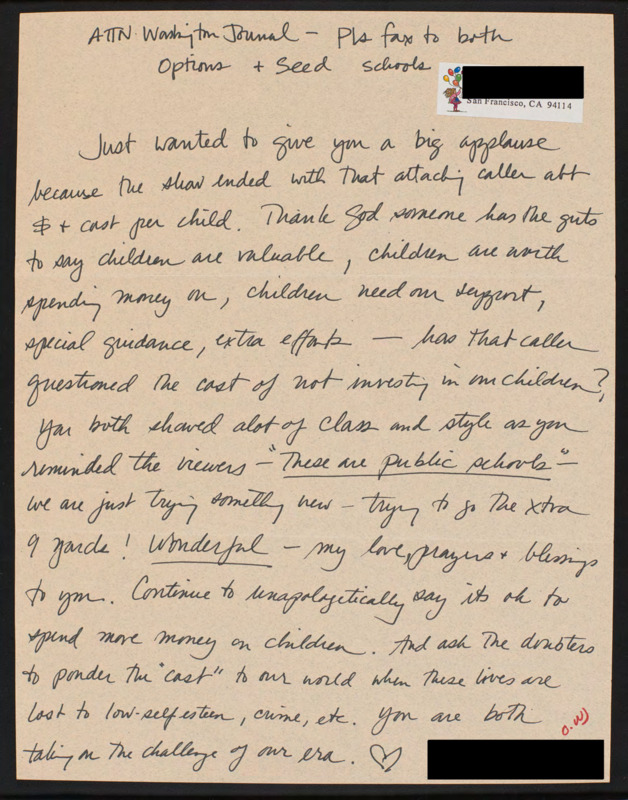 ATTN Washington Journal – Pls fax to both
Options + Seed schools
San Francisco, CA 94114
Just wanted to give you a big applause
because the show ended with that attacking caller abt
$ + cost per child. Thank God someone has the guts
to say children are valuable, children are worth
spending money on, children need our support,
special guidance, extra efforts — has that caller
questioned the cost of not investing in our children?
You both showed alot of class and style as you
reminded the viewers – "These are public schools" –
we are just trying something new – trying to go the xtra
9 yards! Wonderful – my love, prayers + blessings
to you. Continue to unapologetically say its ok to
spend more money on children. And ask the doubters
to ponder the "cost" to our world when these lives are
lost to low-self esteem, crime, etc. You are both
taking on the challenge of our era. ♡